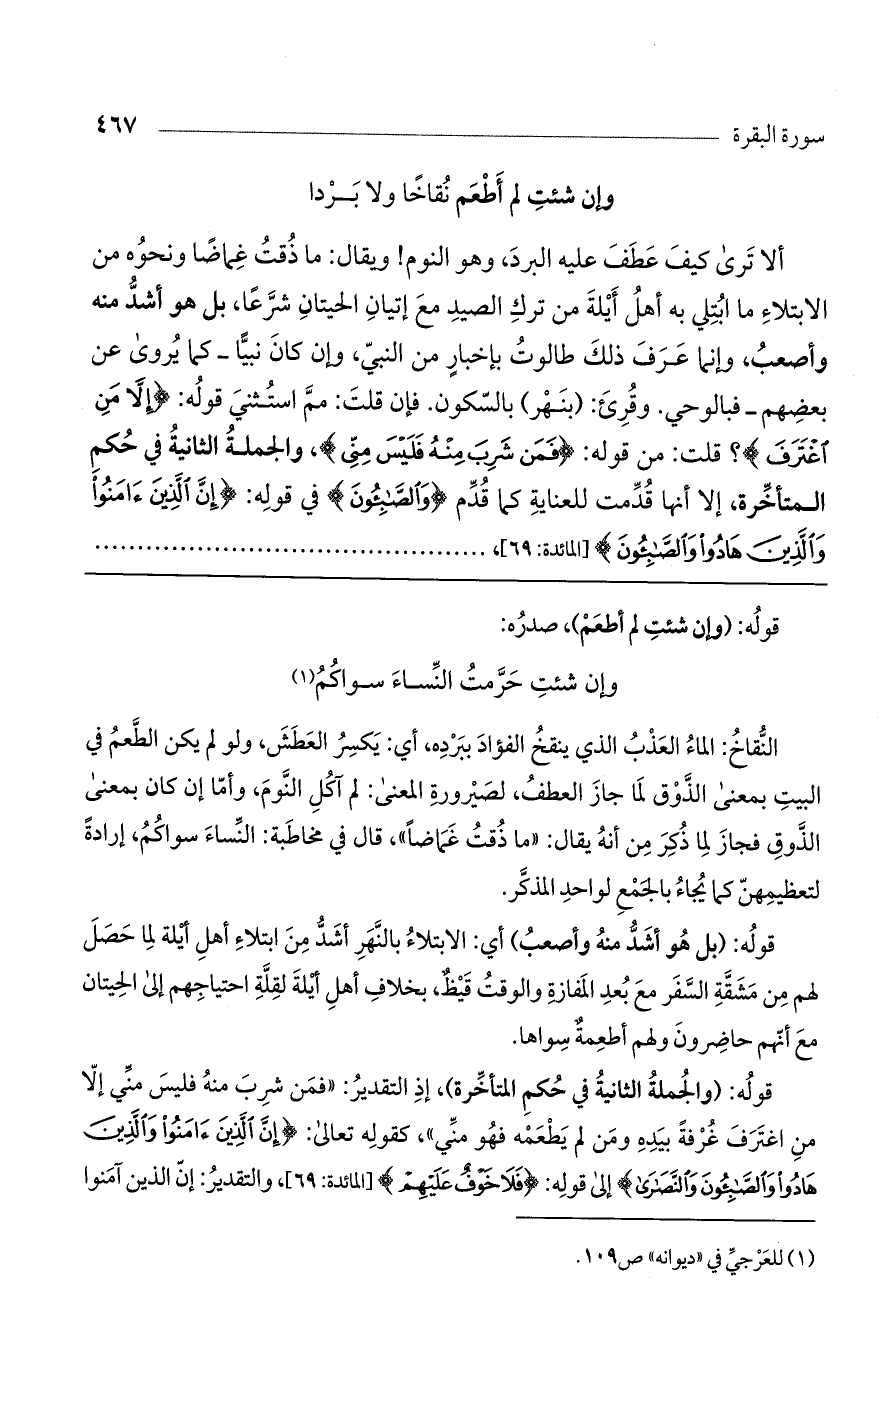 سورة البقرة ٤٦٧
وإن شئتِ لم أَطْعَم نُقاخًا ولا بَرْدا
ألا تَرىٰ كيفَ عَطَفَ عليه البردَ، وهو النوم! ويقال: ما ذُقتُ غِماضًا ونحوُه من
الابتلاءِ ما ابْتُلِي به أهلُ أَيْلةَ من تركِ الصيدِ معَ إتيانِ الحيتانِ شرَّعًا، بل هو أشدُّ منه
وأصعبُ، وإنما عَرَفَ ذلكَ طالوتُ بإخبارٍ من النبيّ، وإن كانَ نبيًّا ـ كما يُروىٰ عن
بعضِهم ـ فبالوحي. وقُرِئَ: (بنَهْر) بالسّكون. فإن قلتَ: ممَّ استُثنيَ قولُه: ﴿إِلَّا مَنِ
ٱغْتَرَفَ﴾؟ قلت: من قوله: ﴿فَمَن شَرِبَ مِنْهُ فَلَيْسَ مِنِّي﴾، والجملةُ الثانيةُ في حُكمِ
المتأخِّرة، إلا أنها قُدِّمت للعنايةِ كما قُدِّم ﴿وَٱلصَّٰبِـُٔونَ﴾ في قوله: ﴿إِنَّ ٱلَّذِينَ ءَامَنُوا۟
وَٱلَّذِينَ هَادُوا۟ وَٱلصَّٰبِـُٔونَ﴾ [المائدة: ٦٩]، .............................................
قولُه: (وإن شئتِ لم أطعَمْ)، صدرُه:
وإن شئتِ حَرَّمتُ النِّساءَ سواكُمُ(١)
النُّقاخُ: الماءُ العَذْبُ الذي ينقخُ الفؤادَ ببَرْدِه، أي: يَكسِرُ العَطَشَ، ولو لم يكن الطَّعمُ في
البيتِ بمعنىٰ الذَّوْق لَما جازَ العطفُ، لصَيْرورةِ المعنىٰ: لم آكُلِ النَّومَ، وأمّا إن كان بمعنىٰ
الذَّوقِ فجازَ لِما ذُكِرَ مِن أنهُ يقال: «ما ذُقتُ غَمَاضاً»، قال في مخاطَبة: النِّساءَ سواكُمُ، إرادةً
لتعظيمِهنّ كما يُجاءُ بالجَمْعِ لواحدِ المذكَّر.
قولُه: (بل هُو أشدُّ منهُ وأصعبُ) أي: الابتلاءُ بالنَّهَرِ أشدُّ مِنَ ابتلاءِ أهلِ أيْلة لِما حَصَلَ
لهم مِن مَشقَّةِ السَّفَر معَ بُعدِ المَفازةِ والوقتُ قَيْظٌ، بخلافِ أهلِ أيْلةَ لقِلَّةِ احتياجِهم إلىٰ الحِيتان
معَ أنّهم حاضِرونَ ولهم أطعِمةٌ سِواها.
قولُه: (والجُملةُ الثانيةُ في حُكمِ المتأخِّرة)، إذِ التقديرُ: «فمَن شرِبَ منهُ فليسَ منِّي إلّا
منِ اغتَرَفَ غُرْفةً بيَدِهِ ومَن لم يَطْعَمْه فهُو منِّي»، كقولِه تعالىٰ: ﴿إِنَّ ٱلَّذِينَ ءَامَنُوا۟ وَٱلَّذِينَ
هَادُوا۟ وَٱلصَّٰبِـُٔونَ وَٱلنَّصَٰرَىٰ﴾ إلىٰ قولِه: ﴿فَلَا خَوْفٌ عَلَيْهِمْ﴾ [المائدة: ٦٩]، والتقديرُ: إنّ الذين آمَنوا
(١) للعَرْجيِّ في «ديوانه» ص١٠٩.